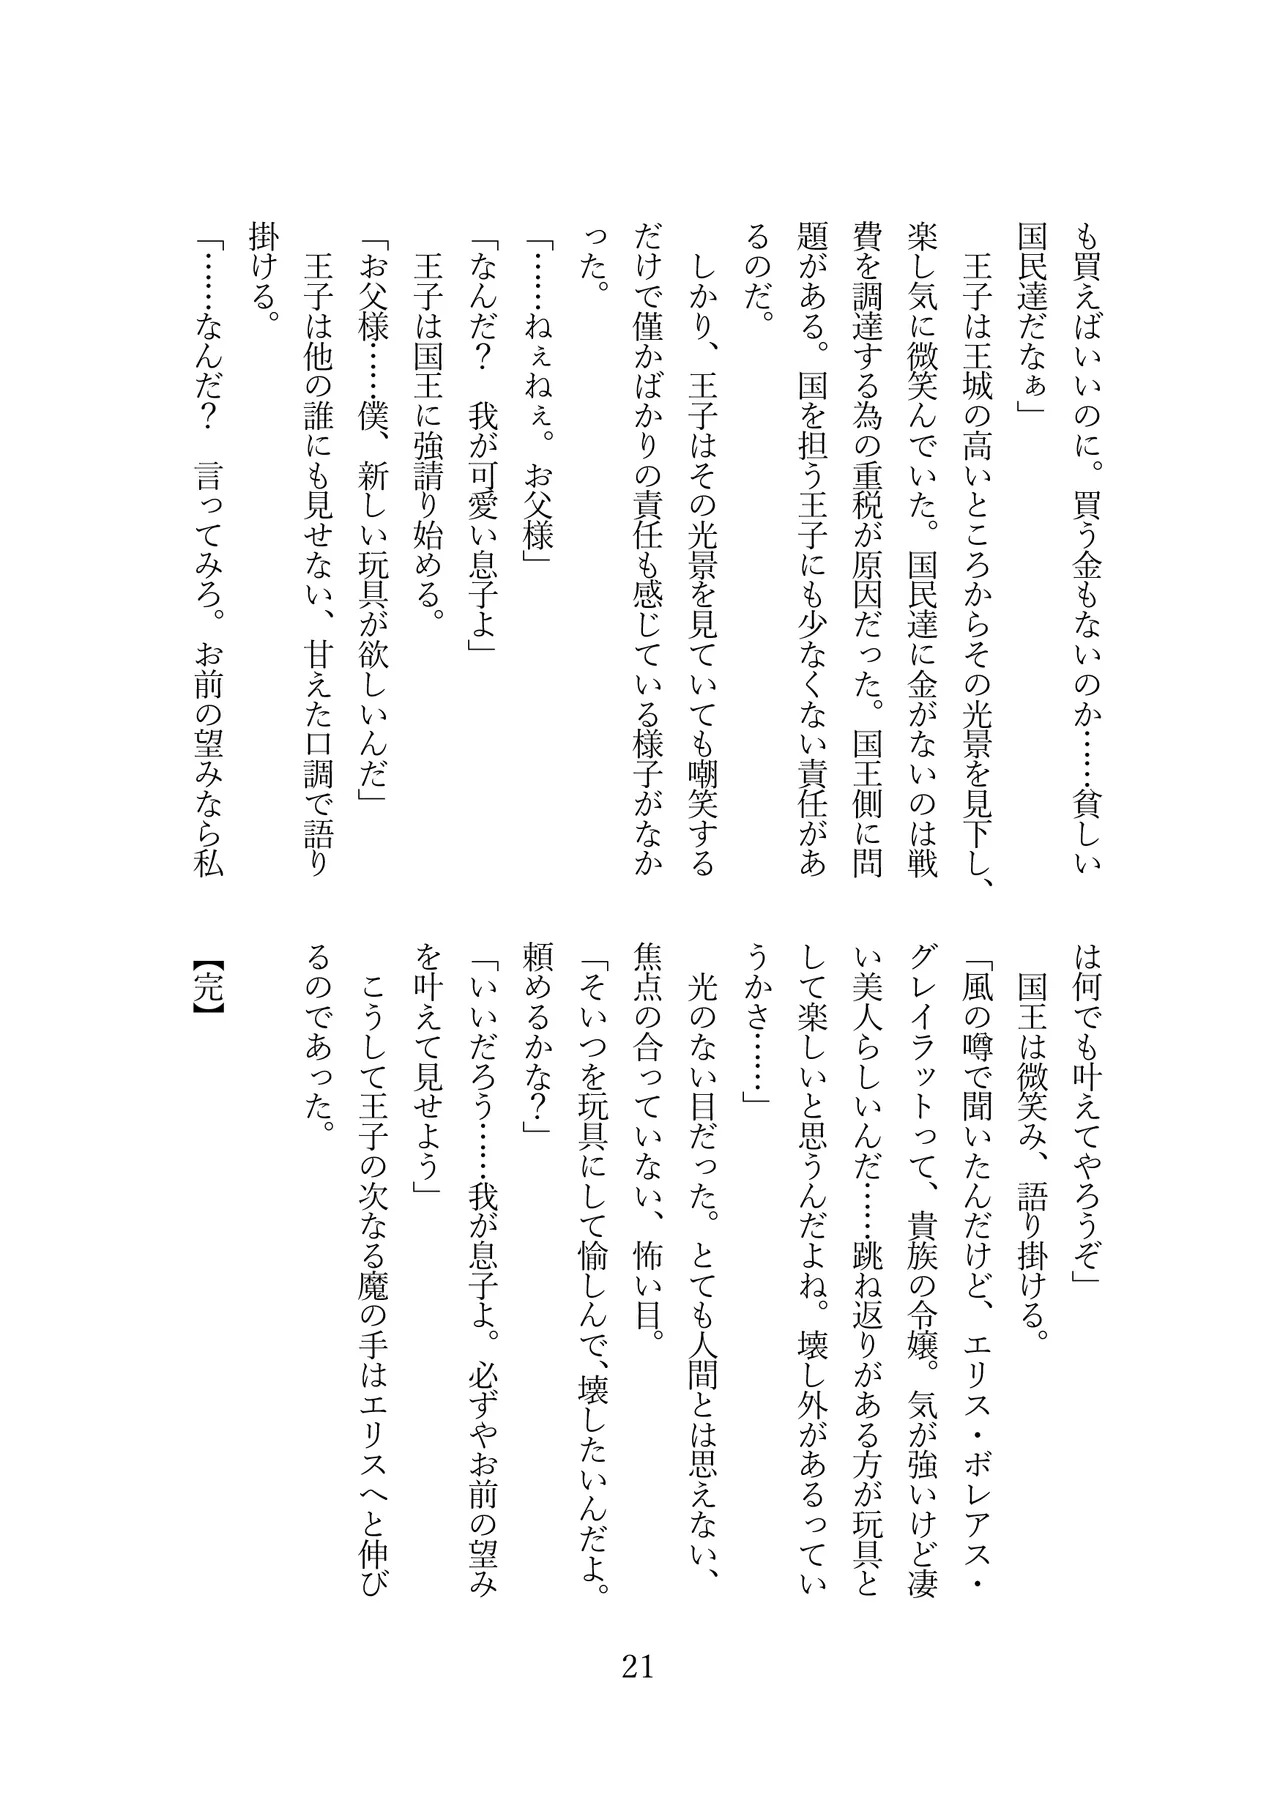 も買えばいいのに。買う金もないのか……貧しい
国民達だなぁ」
　王子は王城の高いところからその光景を見下し、
楽し気に微笑んでいた。国民達に金がないのは戦
費を調達する為の重税が原因だった。国王側に問
題がある。国を担う王子にも少なくない責任があ
るのだ。
　しかり、王子はその光景を見ていても嘲笑する
だけで僅かばかりの責任も感じている様子がなか
った。
「……ねぇねぇ。お父様」
「なんだ？　我が可愛い息子よ」
　王子は国王に強請り始める。
「お父様……僕、新しい玩具が欲しいんだ」
　王子は他の誰にも見せない、甘えた口調で語り
掛ける。
「……なんだ？　言ってみろ。お前の望みなら私
は何でも叶えてやろうぞ」
　国王は微笑み、語り掛ける。
「風の噂で聞いたんだけど、エリス・ボレアス・
グレイラットって、貴族の令嬢。気が強いけど凄
い美人らしいんだ……跳ね返りがある方が玩具と
して楽しいと思うんだよね。壊し外があるってい
うかさ……」
　光のない目だった。とても人間とは思えない、
焦点の合っていない、怖い目。
「そいつを玩具にして愉しんで、壊したいんだよ。
頼めるかな？」
「いいだろう……我が息子よ。必ずやお前の望み
を叶えて見せよう」
　こうして王子の次なる魔の手はエリスへと伸び
るのであった。
【完】
21